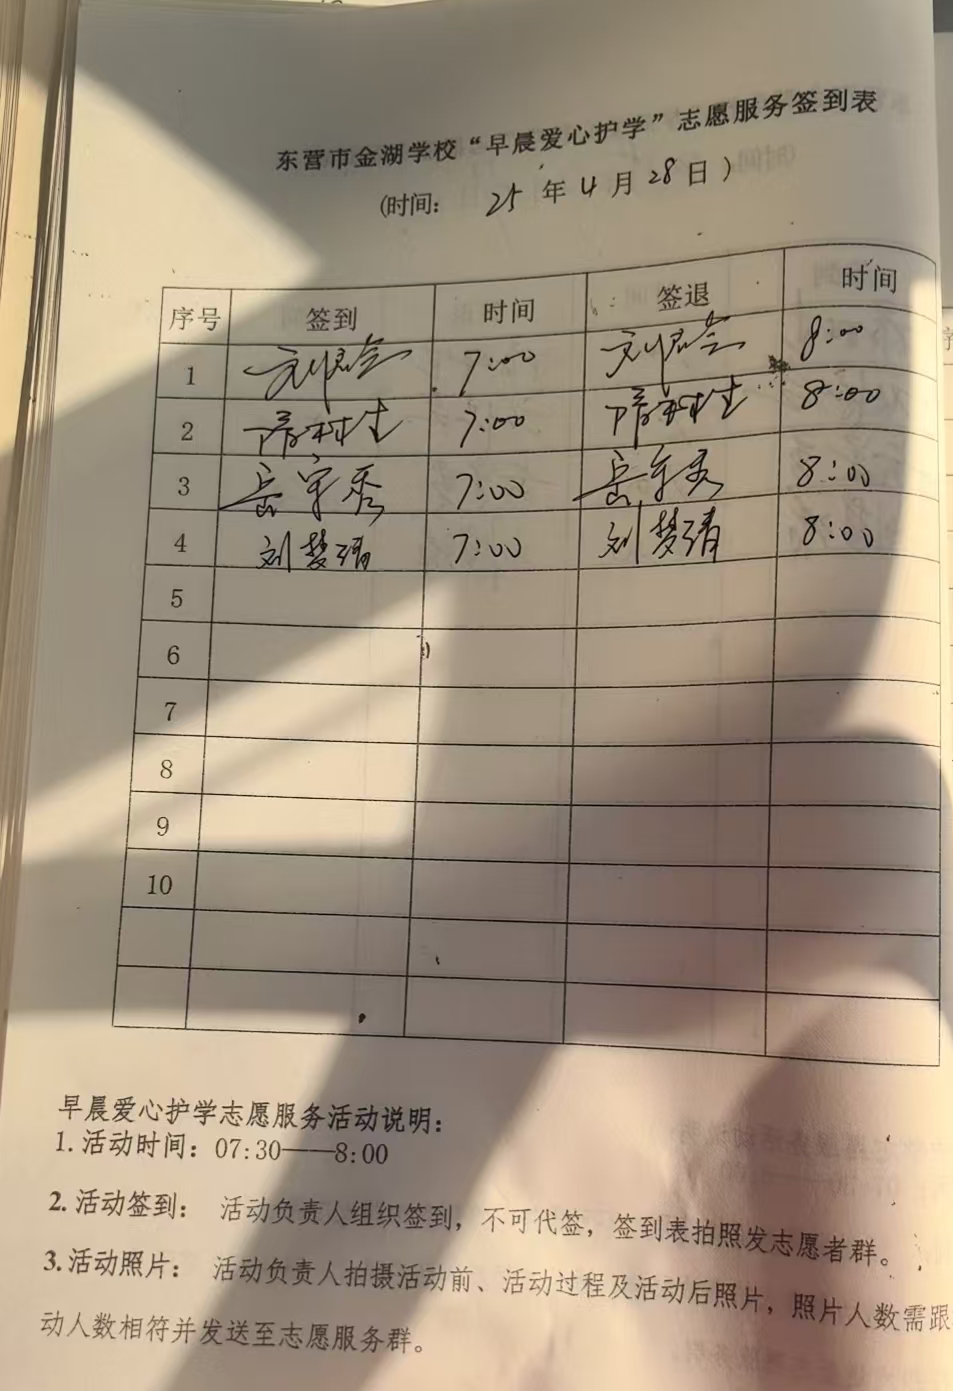 东营市金湖学校“早晨爱心护学”志愿服务签到表
(时间： 25 年 4 月 28 日 )
序号 签到 时间 签退 时间
1 7:00 8:00
2 7:00 8:00
3 岳宇秀 7:00 岳宇秀 8:00
4 刘梦清 7:00 刘梦清 8:00
5
6
7
8
9
10
早晨爱心护学志愿服务活动说明：
1. 活动时间：07:30——8:00
2. 活动签到： 活动负责人组织签到，不可代签，签到表拍照发志愿者群。
3. 活动照片： 活动负责人拍摄活动前、活动过程及活动后照片，照片人数需跟
动人数相符并发送至志愿服务群。